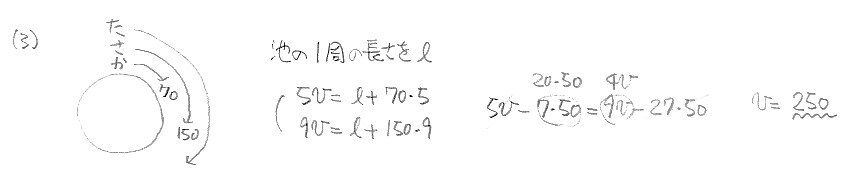 (3)
た
さ
か
70
150
池の1周の長さをl
5v = l + 70・5
9v = l + 150・9
20・50 4v
5v - 7・50 = 9v - 27・50
v = 250